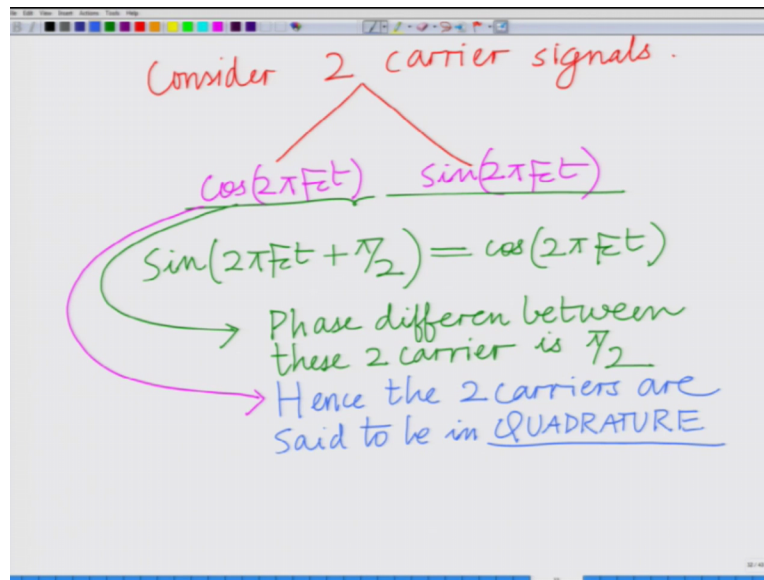 File Edit View Insert Actions Tools Help
Consider 2 carrier signals.
cos(2πFct) sin(2πFct)
Sin(2πFct + π/2) = cos(2πFct)
Phase differen between
these 2 carrier is π/2
Hence the 2 carriers are
said to be in QUADRATURE